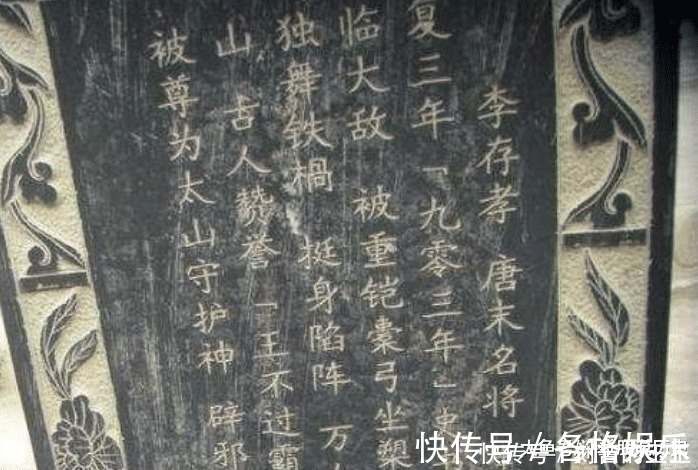 李存孝 唐末名将
复三年「九零三年」
临大敌 被重铠橐弓坐
独舞铁楇 挺身陷阵 万
山 古人赞誉「王不过霸
被尊为太山守护神 辟邪
快传号